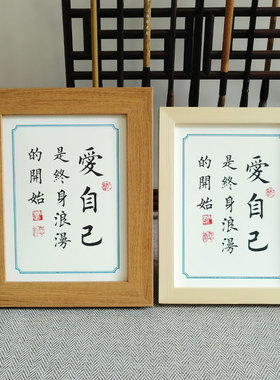 愛自己
是終身浪漫
的開始
愛自己
是終身浪漫
的開始